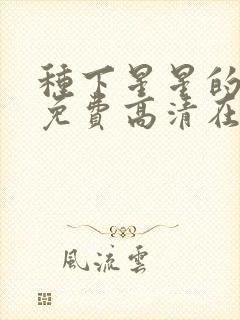 種下星星的
免費高清在
風流雲